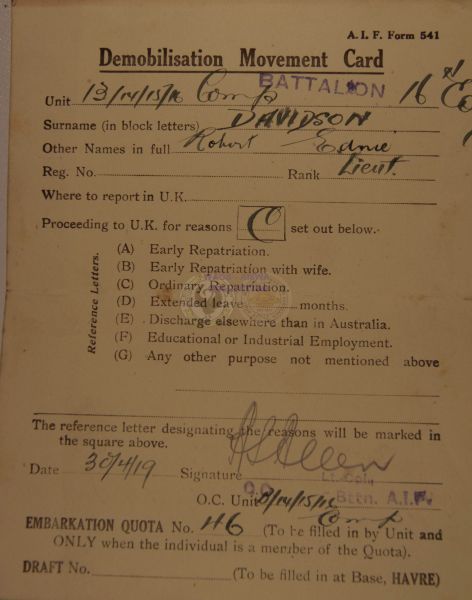 A. I. F. Form 541
Demobilisation Movement Card
Unit 13/14/15/16 Comp BATTALION 16th
Surname (in block letters) DAVIDSON
Other Names in full Robert
Reg. No. Rank Lieut.
Where to report in U.K.
Proceeding to U.K. for reasons C set out below.
Reference Letters.
(A) Early Repatriation.
(B) Early Repatriation with wife.
(C) Ordinary Repatriation.
(D) Extended leave months.
(E) Discharge elsewhere than in Australia.
(F) Educational or Industrial Employment.
(G) Any other purpose not mentioned above
The reference letter designating the reasons will be marked in
the square above.
Date 30/4/19 Signature
Lt. Col.
O.C. Unit 13/14/15/16 Battn. A.I.F.
Comp
EMBARKATION QUOTA No. 46 (To be filled in by Unit and
ONLY when the individual is a member of the Quota).
DRAFT No. (To be filled in at Base, HAVRE)